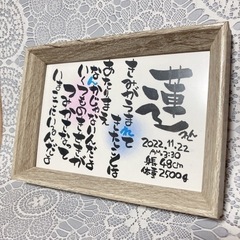 蓮
れん
2022.11.22
AM3:30
身長 48cm
体重 2500g
きみがうまれて
きたことは
あたりまえ
なんかじゃないんだよ
いくつものきせきが
つみかさなって
いまここにいるんだよ